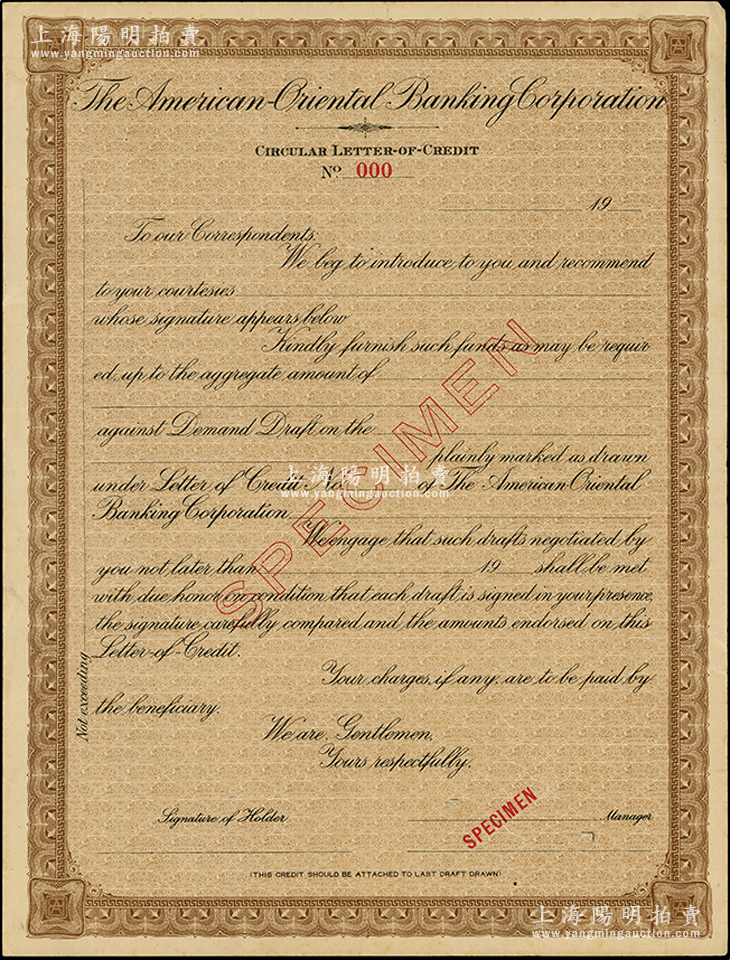 上海陽明拍賣
www.yangmingauction.com
The American-Oriental Banking Corporation
CIRCULAR LETTER-OF-CREDIT
Nº 000
19
To our Correspondents:
We beg to introduce to you and recommend
to your courtesies
whose signature appears below
Kindly furnish such funds as may be requir
ed, up to the aggregate amount of
against Demand Draft on the
plainly marked as drawn
under Letter of Credit No. of The American Oriental
Banking Corporation.
上海陽明拍賣
www.yangmingauction.com
SPECIMEN
We engage that such drafts negotiated by
you not later than 19 shall be met
with due honor on condition that each draft is signed in your presence,
the signature carefully compared and the amounts endorsed on this
Letter-of-Credit.
Not exceeding
Your charges, if any, are to be paid by
the beneficiary.
We are, Gentlemen,
Yours respectfully,
Signature of Holder
SPECIMEN
Manager
(THIS CREDIT SHOULD BE ATTACHED TO LAST DRAFT DRAWN)
上海陽明拍賣
www.yangmingauction.com